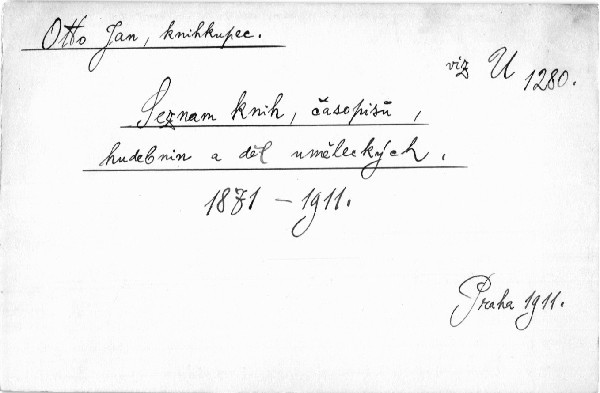 Otto Jan, knihkupec.
viz U 1280.
Seznam knih, časopisů,
hudebnin a děl uměleckých.
1871 – 1911.
Praha 1911.